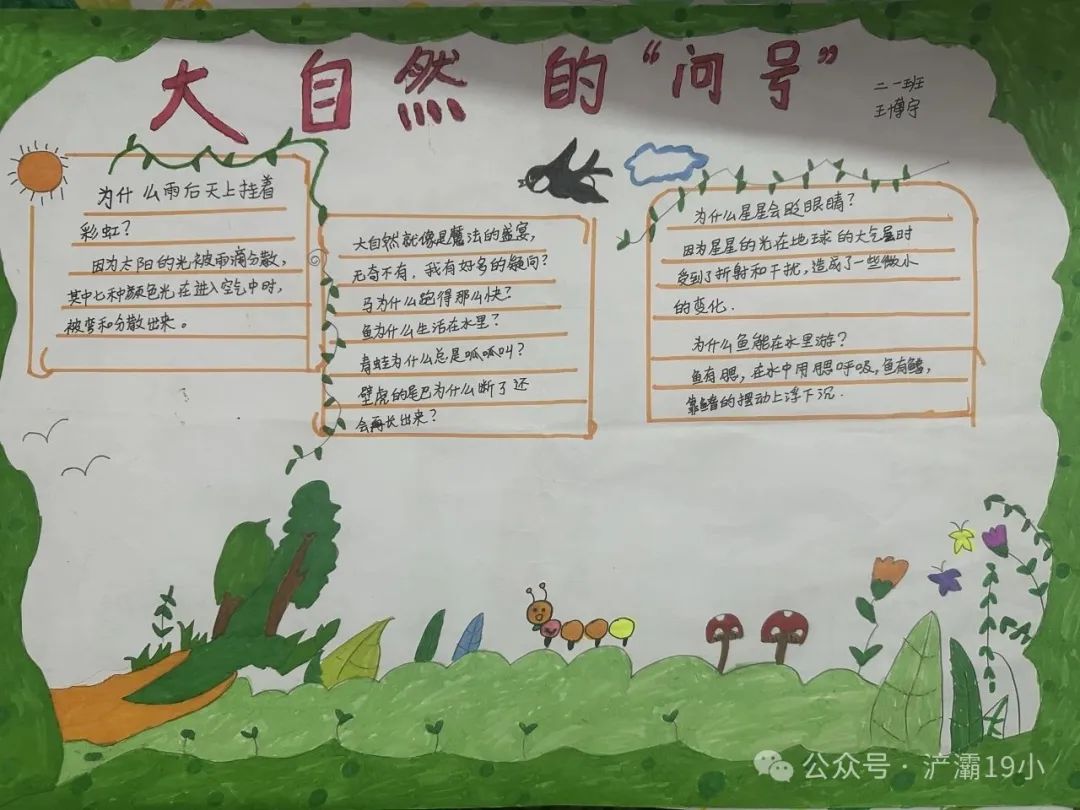 大自然的“问号”
二一班
王博宇
为什么雨后天上挂着
彩虹？
因为太阳的光被雨滴分散，
其中七种颜色光在进入空气中时，
被弯和分散出来。
大自然就像是魔法的盛宴，
无奇不有，我有好多的疑问？
马为什么跑得那么快？
鱼为什么生活在水里？
青蛙为什么总是呱呱叫？
壁虎的尾巴为什么断了还
会再长出来？
为什么星星会眨眼睛？
因为星星的光在地球的大气层时
受到了折射和干扰，造成了一些微小
的变化.
为什么鱼能在水里游？
鱼有腮，在水中用腮呼吸，鱼有鳍，
靠鳍的摆动上浮下沉.
公众号·浐灞19小